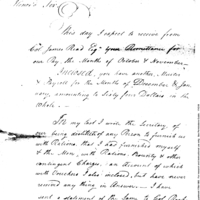 Sir
This day I expect to receive from
Col. James Read Esqr your Remittance for
our Pay the Months of October & November
Inclosed, you have another, Muster
& Payroll for the Months of December & Jan
uary, amounting to Sixty four Dollars in the
Whole.
In my last I wish the Secretary, of
our being destitute of any Person to furnish us
with Rations, that I had furnished myself
& the Men, with Rations, Promptly & other
contingent Charges, an Account of which
with Vouchers I also inclosed, but have never
received any thing in Answer. I have
sent a statement of the Same to Col. Read